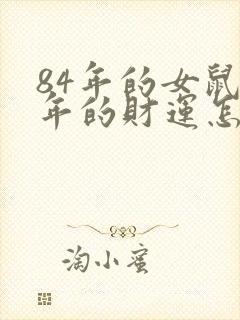 84年的女鼠
年的财运怎
淘小蜜